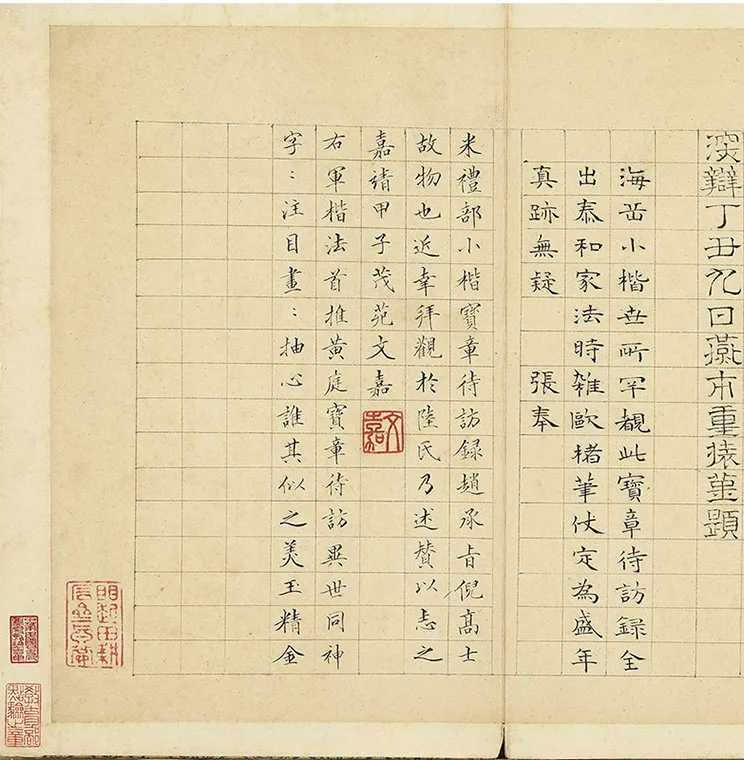 辯丁丑九日燕市重題
海岳小楷世所罕覩此寶章待訪録全
出泰和家法時雜歐楮筆仗定為盛年
真跡無疑 張奉
米禮部小楷寶章待訪録趙承旨倪髙士
故物也近幸拜觀於陸氏乃述賛以志之
嘉靖甲子茂苑文嘉
文嘉
右軍楷法首推黄庭寶章待訪異世同神
字〻注目畫〻抽心誰其似之美玉精金